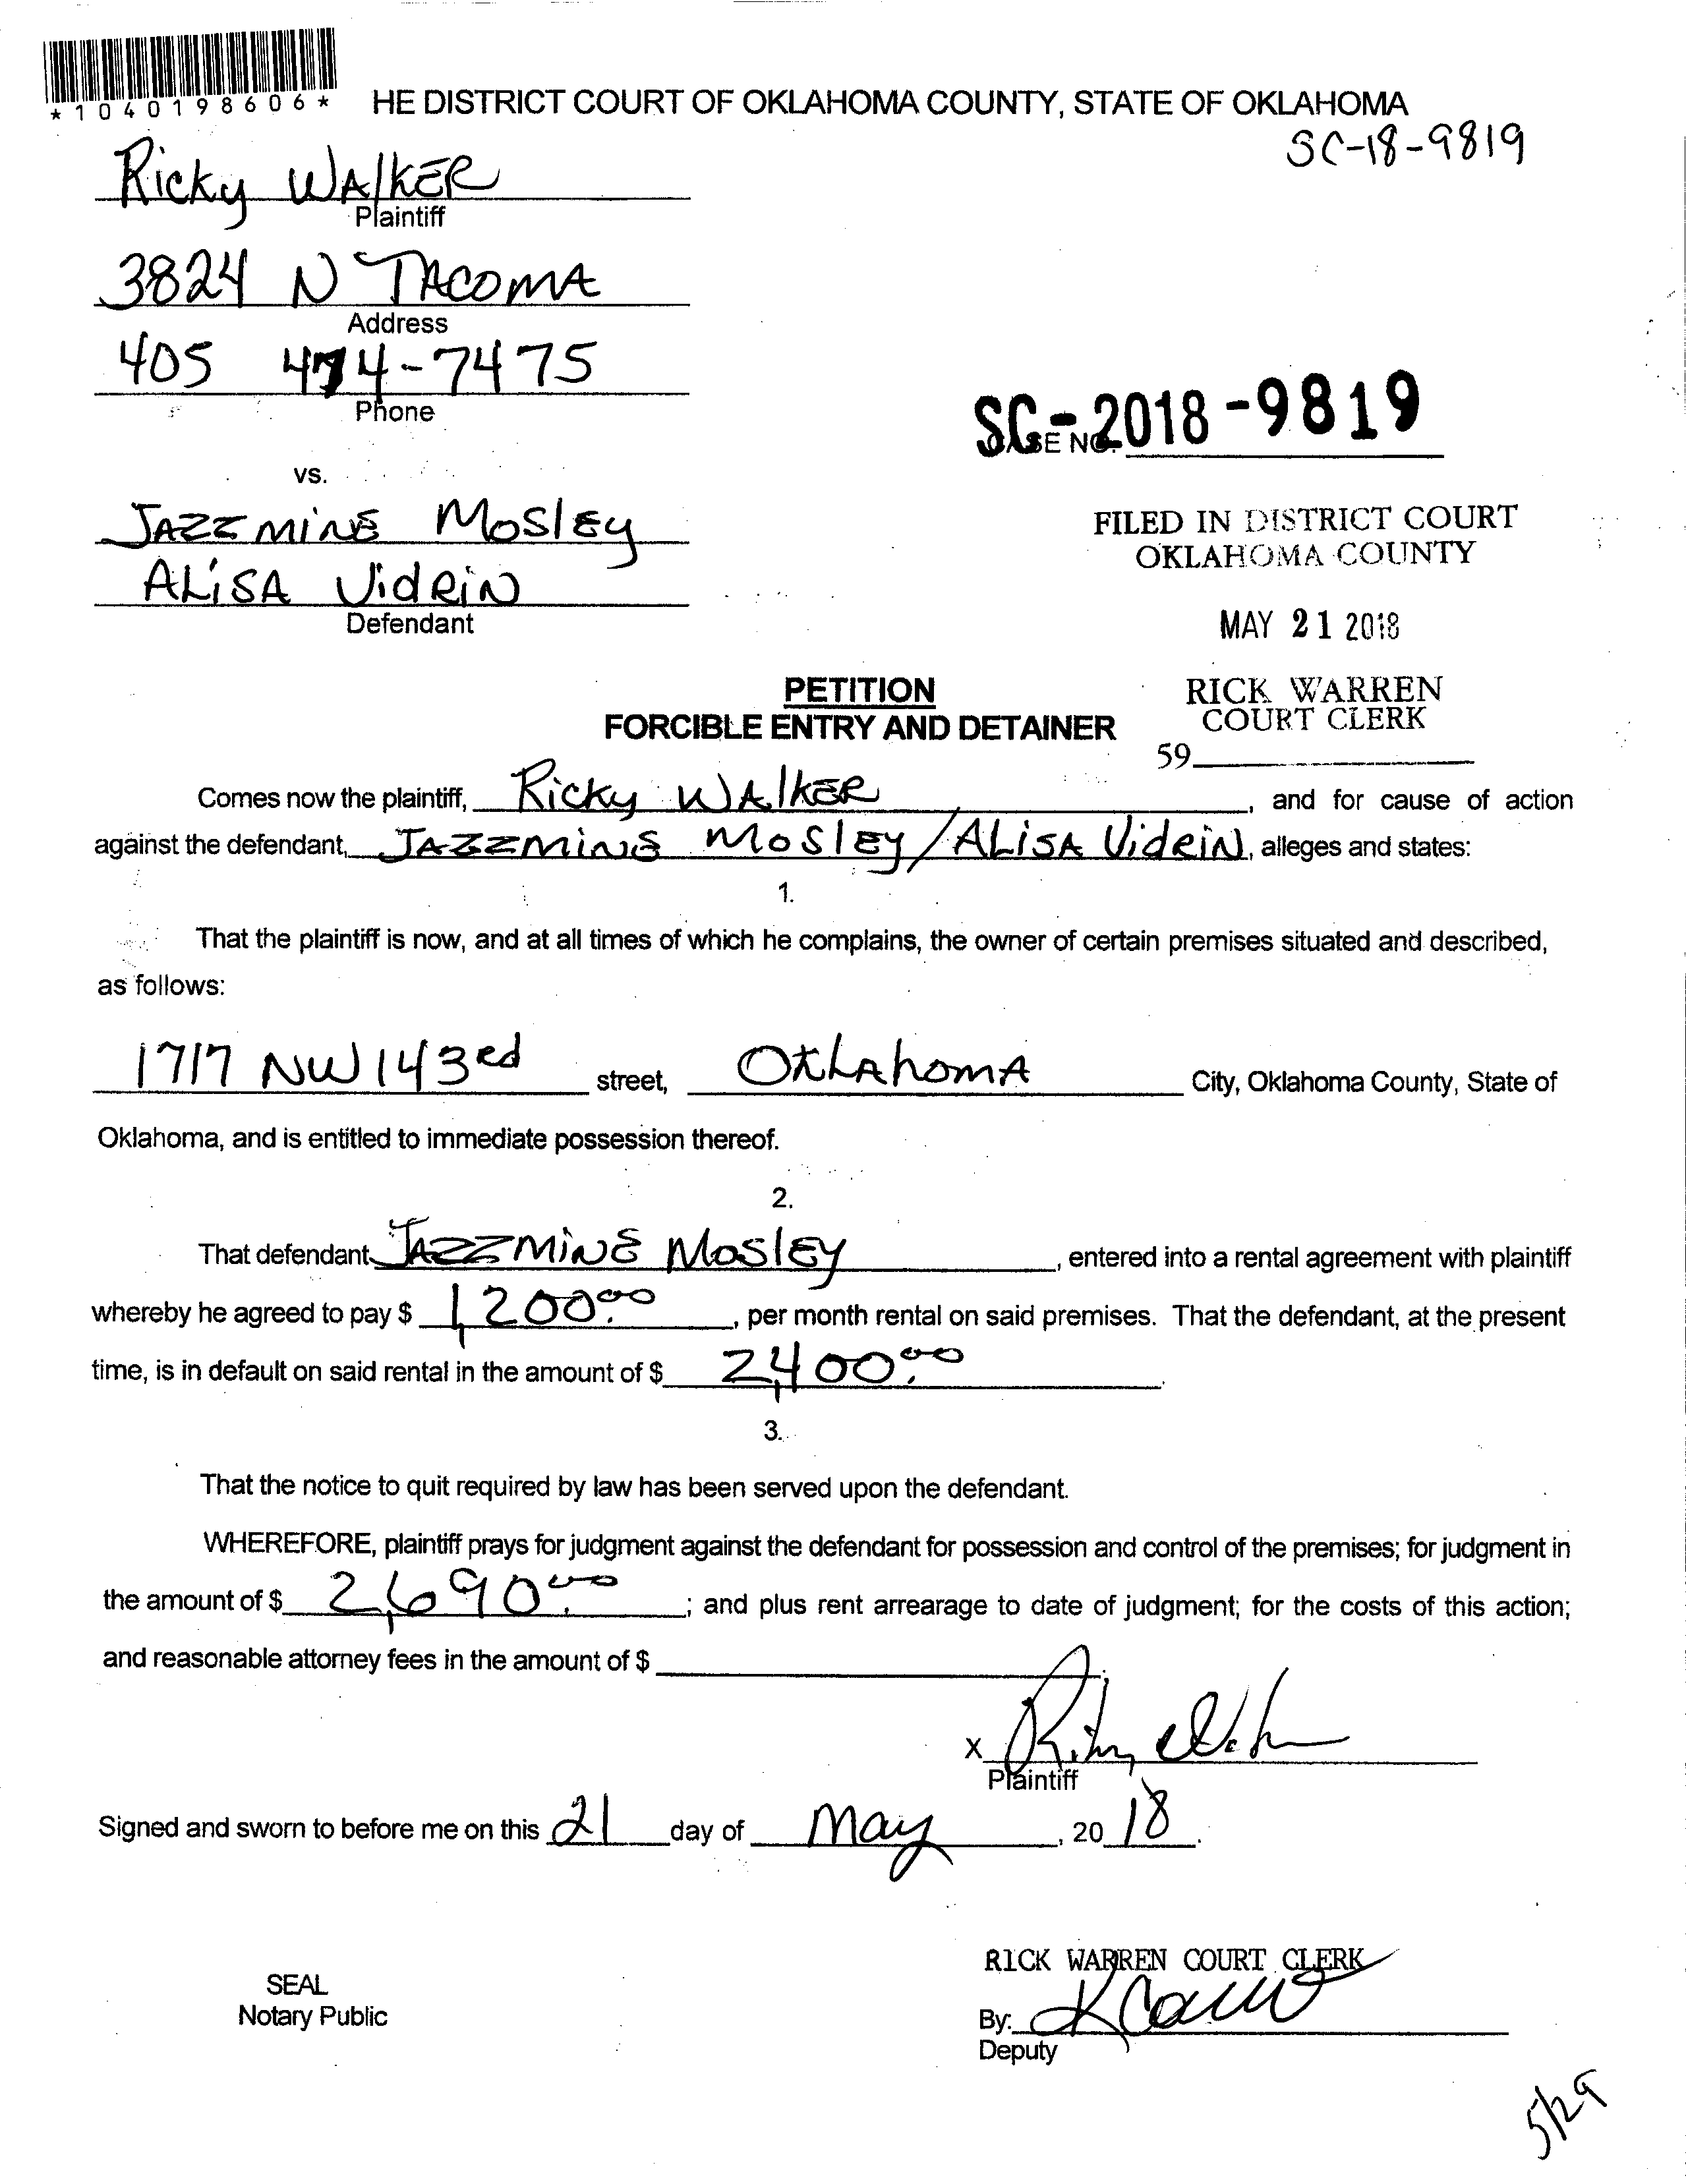 *1040198606*
HE DISTRICT COURT OF OKLAHOMA COUNTY, STATE OF OKLAHOMA
SC-18-9819
Ricky WAlkER
Plaintiff
3824 N TACOMA
Address
405 474-7475
Phone
SC-2018-9819
CASE NO.
vs.
JAZZMINE MOSlEy
ALiSA VidRiN
Defendant
FILED IN DISTRICT COURT
OKLAHOMA COUNTY
MAY 21 2018
PETITION
FORCIBLE ENTRY AND DETAINER
RICK WARREN
COURT CLERK
59
Comes now the plaintiff, Ricky WAlkER, and for cause of action
against the defendant, JAZZMINE MOSlEy/ALiSA VidRiN, alleges and states:
1.
That the plaintiff is now, and at all times of which he complains, the owner of certain premises situated and described,
as follows:
1717 NW 143Rd street, OkLAhomA City, Oklahoma County, State of
Oklahoma, and is entitled to immediate possession thereof.
2.
That defendant JAZZMINE MOSlEy, entered into a rental agreement with plaintiff
whereby he agreed to pay $ 1,200.00, per month rental on said premises. That the defendant, at the present
time, is in default on said rental in the amount of $ 2,400.00.
3.
That the notice to quit required by law has been served upon the defendant.
WHEREFORE, plaintiff prays for judgment against the defendant for possession and control of the premises; for judgment in
the amount of $ 2,690.00; and plus rent arrearage to date of judgment; for the costs of this action;
and reasonable attorney fees in the amount of $
X
Plaintiff
Signed and sworn to before me on this 21 day of May, 20 18.
RICK WARREN COURT CLERK
SEAL
Notary Public
By:
Deputy
5/29